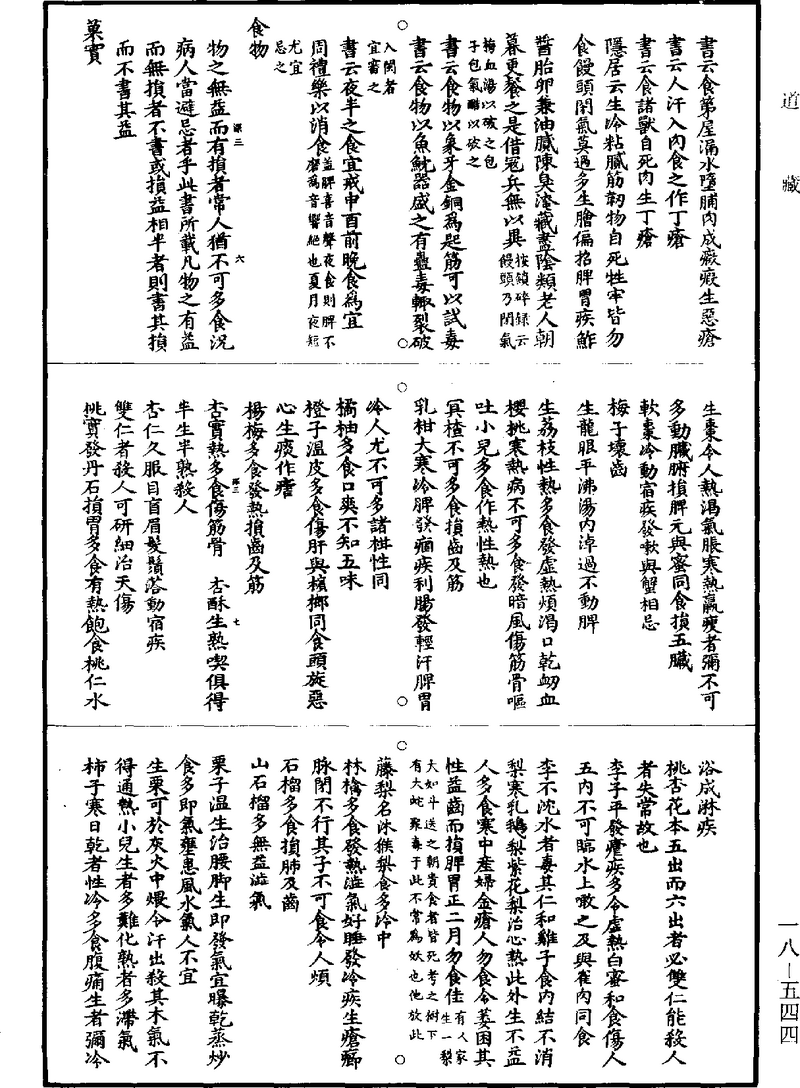 道藏
書云食第屋漏水墮脯肉成癥瘕生惡瘡
書云人汗入肉食之作丁瘡
書云食諸獸自死肉生丁瘡
隱居云生冷粘膩筋韌物自死牲牢皆勿
食饅頭閉氣莫過多生膾偏招脾胃疾鮓
醬胎卵兼油膩陳臭淹藏盡陰類老人朝
暮更餐之是借冠兵無以異按鎖碎録云饅頭乃閉氣
梅血湯以破之包子包氣醋以破之
書云食物以象牙金銅為匙筯可以試毒
書云食物以魚魫器盛之有蠱毒輙裂破
入閩者宜審之
書云夜半之食宜戒申酉前晚食為宜
周禮樂以消食蓋脾喜音聲夜食則脾不磨為音響絶也夏月夜短
尤宜忌之
食物
物之無益而有損者常人猶不可多食況
深三 六
病人當避忌者乎此書所載凡物之有益
而無損者不書或損益相半者則書其損
而不書其益
菓實
生棗令人熱渴氣脹寒熱羸瘦者彌不可
多動臟腑損脾元與蜜同食損五臟
軟棗冷動宿疾發嗽與蟹相忌
梅子壞齒
生龍眼平沸湯內淖過不動脾
生荔枝性熱多食發虛熱煩渴口乾衂血
櫻桃寒熱病不可多食發暗風傷筋骨嘔
吐小兒多食作熱性熱也
冥楂不可多食損齒及筋
乳柑大寒冷脾發痼疾利腸發輕汗脾胃
冷人尤不可多諸柑性同
橘柚多食口爽不知五味
橙子溫皮多食傷肝與檳榔同食頭旋惡
心生痰作瘧
楊梅多食發熱損齒及筋
杏實熱多食傷筋骨 杏酥生熟喫俱得
深三 七
半生半熟殺人
杏仁久服目首眉髮鬚落動宿疾
雙仁者殺人可研細治犬傷
桃實發丹石損胃多食有熱飽食桃仁水
浴成淋疾
桃杏花本五出而六出者必雙仁能殺人
者失常故也
李子平發瘧疾多令虛熱白蜜和食傷人
五內不可臨水上噉之及與雀肉同食
李不沈水者毒其仁和雞子食內結不消
梨寒乳鵝梨紫花梨治心熱此外生不益
人多食寒中産婦金瘡人勿食令萎困其
性益齒而損脾胃正二月勿食佳有人家生一梨
大如斗送之朝貴食者皆死考之樹下有大蛇聚毒于此不常為妖也他放此
藤梨名沐猴梨食多冷中
林檎多食發熱澁氣好睡發冷疾生瘡癤
脉閉不行其子不可食令人煩
石榴多食損肺及齒
山石榴多無益澁氣
栗子溫生治腰脚生即發氣宜曝乾蒸炒
食多即氣壅患風水氣人不宜
生栗可於灰火中煨令汗出殺其木氣不
得通熱小兒生者多難化熟者多滯氣
柿子寒日乾者性冷多食腹痛生者彌冷
一八—五四四